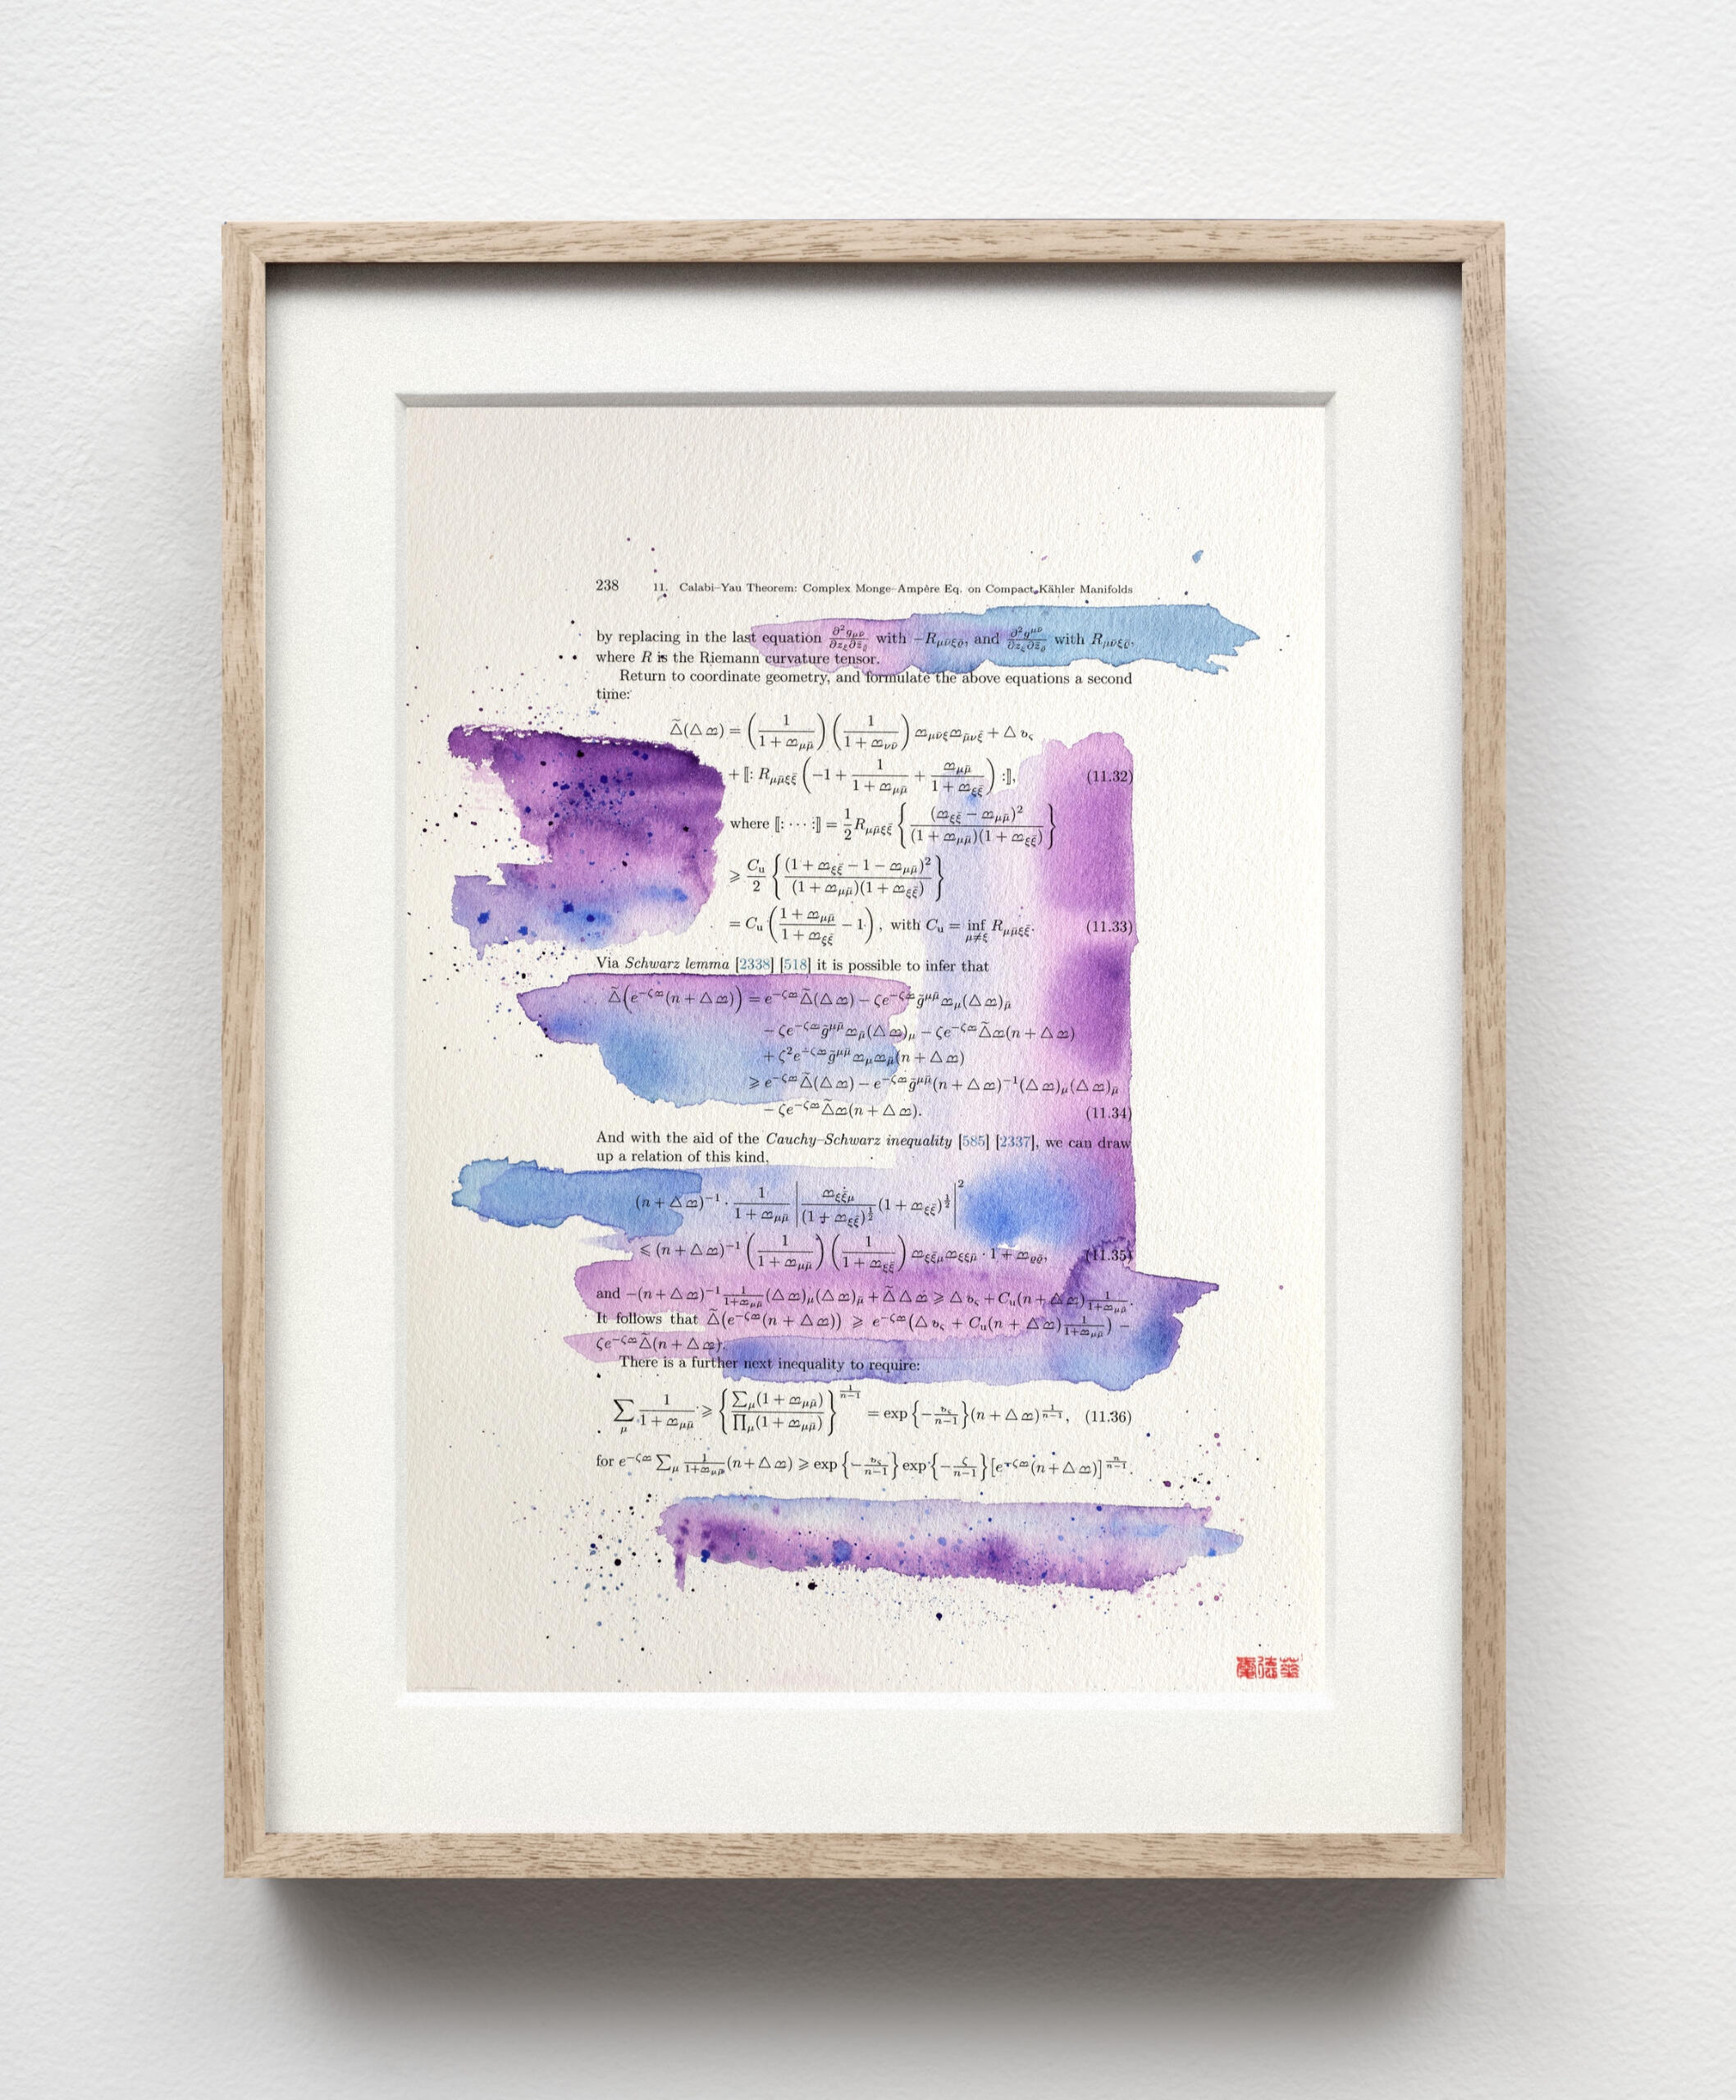 238 11. Calabi–Yau Theorem: Complex Monge–Ampère Eq. on Compact Kähler Manifolds
by replacing in the last equation ∂²g_{μν̄}/∂z_ξ∂z̄_{ϱ̄} with −R_{μν̄ξϱ̄}, and ∂²g^{μν̄}/∂z_ξ∂z̄_{ϱ̄} with R_{μν̄ξϱ̄},
where R is the Riemann curvature tensor.
Return to coordinate geometry, and formulate the above equations a second
time:
△̃(△ ლ) = (1/(1 + ლ_{μμ̄})) (1/(1 + ლ_{νν̄})) ლ_{μν̄ξ}ლ_{μ̄νξ̄} + △ 𝔳_ς
+ ⟦: R_{μμ̄ξξ̄} (−1 + 1/(1 + ლ_{μμ̄}) + ლ_{μμ̄}/(1 + ლ_{ξξ̄})) :⟧, (11.32)
where ⟦: ⋯ :⟧ = 1/2 R_{μμ̄ξξ̄} { (ლ_{ξξ̄} − ლ_{μμ̄})²/((1 + ლ_{μμ̄})(1 + ლ_{ξξ̄})) }
⩾ C_u/2 { (1 + ლ_{ξξ̄} − 1 − ლ_{μμ̄})²/((1 + ლ_{μμ̄})(1 + ლ_{ξξ̄})) }
= C_u ((1 + ლ_{μμ̄})/(1 + ლ_{ξξ̄}) − 1), with C_u = inf_{μ≠ξ} R_{μμ̄ξξ̄}. (11.33)
Via Schwarz lemma [2338] [518] it is possible to infer that
△̃(e^{−ζლ}(n + △ ლ)) = e^{−ζლ}△̃(△ ლ) − ζe^{−ζლ}g̃^{μμ̄}ლ_μ(△ ლ)_{μ̄}
− ζe^{−ζლ}g̃^{μμ̄}ლ_{μ̄}(△ ლ)_μ − ζe^{−ζლ}△̃ლ(n + △ ლ)
+ ζ²e^{−ζლ}g̃^{μμ̄}ლ_μლ_{μ̄}(n + △ ლ)
⩾ e^{−ζლ}△̃(△ ლ) − e^{−ζლ}g̃^{μμ̄}(n + △ ლ)^{−1}(△ ლ)_μ(△ ლ)_{μ̄}
− ζe^{−ζლ}△̃ლ(n + △ ლ). (11.34)
And with the aid of the Cauchy–Schwarz inequality [585] [2337], we can draw
up a relation of this kind,
(n + △ ლ)^{−1} · 1/(1 + ლ_{μμ̄}) |ლ_{ξξ̄μ}/(1 + ლ_{ξξ̄})^{1/2} (1 + ლ_{ξξ̄})^{1/2}|²
⩽ (n + △ ლ)^{−1} (1/(1 + ლ_{μμ̄})) (1/(1 + ლ_{ξξ̄})) ლ_{ξξ̄μ}ლ_{ξξμ̄} · 1 + ლ_{ϱϱ̄}, (11.35)
and −(n + △ ლ)^{−1} 1/(1+ლ_{μμ̄}) (△ ლ)_μ(△ ლ)_{μ̄} + △̃ △ ლ ⩾ △ 𝔳_ς + C_u(n + △ ლ) 1/(1+ლ_{μμ̄}).
It follows that △̃(e^{−ζლ}(n + △ ლ)) ⩾ e^{−ζლ}(△ 𝔳_ς + C_u(n + △ ლ) 1/(1+ლ_{μμ̄})) −
ζe^{−ζლ}△̃(n + △ ლ).
There is a further next inequality to require:
∑_μ 1/(1 + ლ_{μμ̄}) ⩾ { ∑_μ(1 + ლ_{μμ̄})/∏_μ(1 + ლ_{μμ̄}) }^{1/(n−1)} = exp{−𝔳_ς/(n−1)}(n + △ ლ)^{1/(n−1)}, (11.36)
for e^{−ζლ} ∑_μ 1/(1+ლ_{μμ̄}) (n + △ ლ) ⩾ exp{−𝔳_ς/(n−1)} exp{−ζ/(n−1)} [e^{−ζლ}(n + △ ლ)]^{n/(n−1)}.